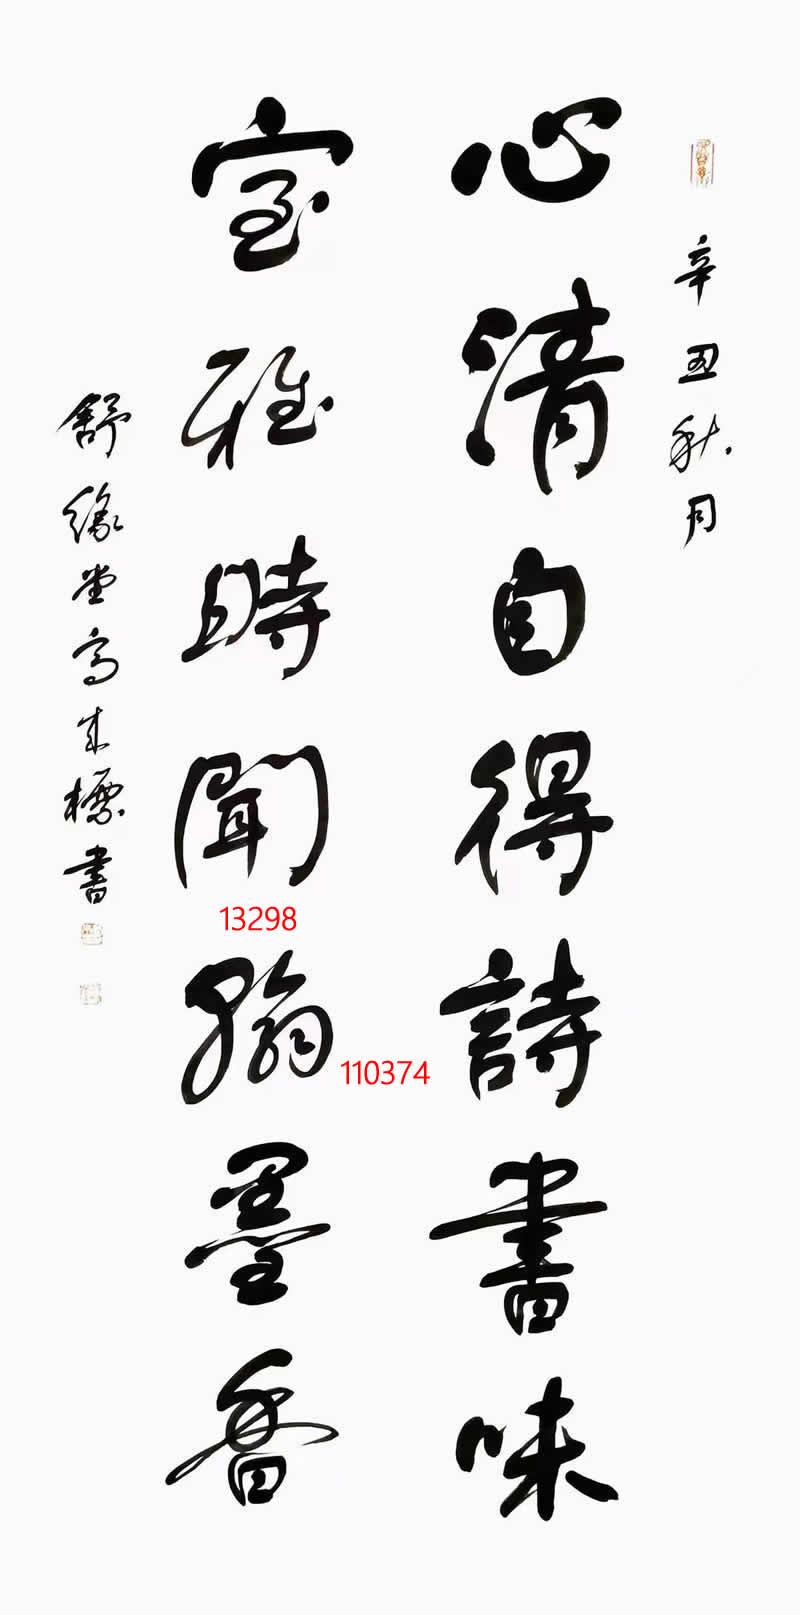 辛丑秋月
心清自得詩書味
室雅時聞翰墨香
舒緣堂高來標書
13298
110374